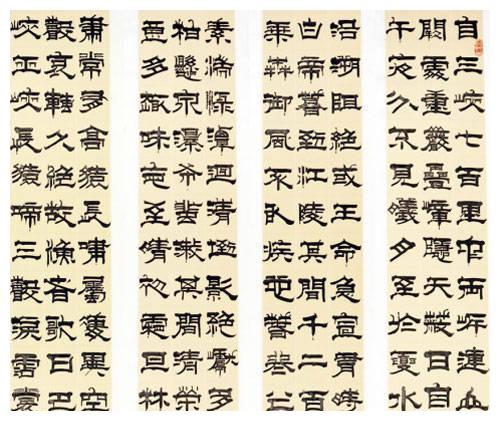 自三峽七百里中兩岸連山
闕處重巖疊嶂隱天蔽日自
午夜分不見曦夕至於夏水
沿溯阻絕或王命急宣有時
白帝暮到江陵其間千二百
乘犇御風不以疾也春冬之
素湍綠潭迴清倒影絕巘多
柏懸泉瀑布飛漱其間清榮
良多趣味每至晴初霜旦林
肅常有高猿長嘯屬異空
響哀轉久絕故漁者歌曰巴
峽巫峽長猿啼三聲淚霑裳